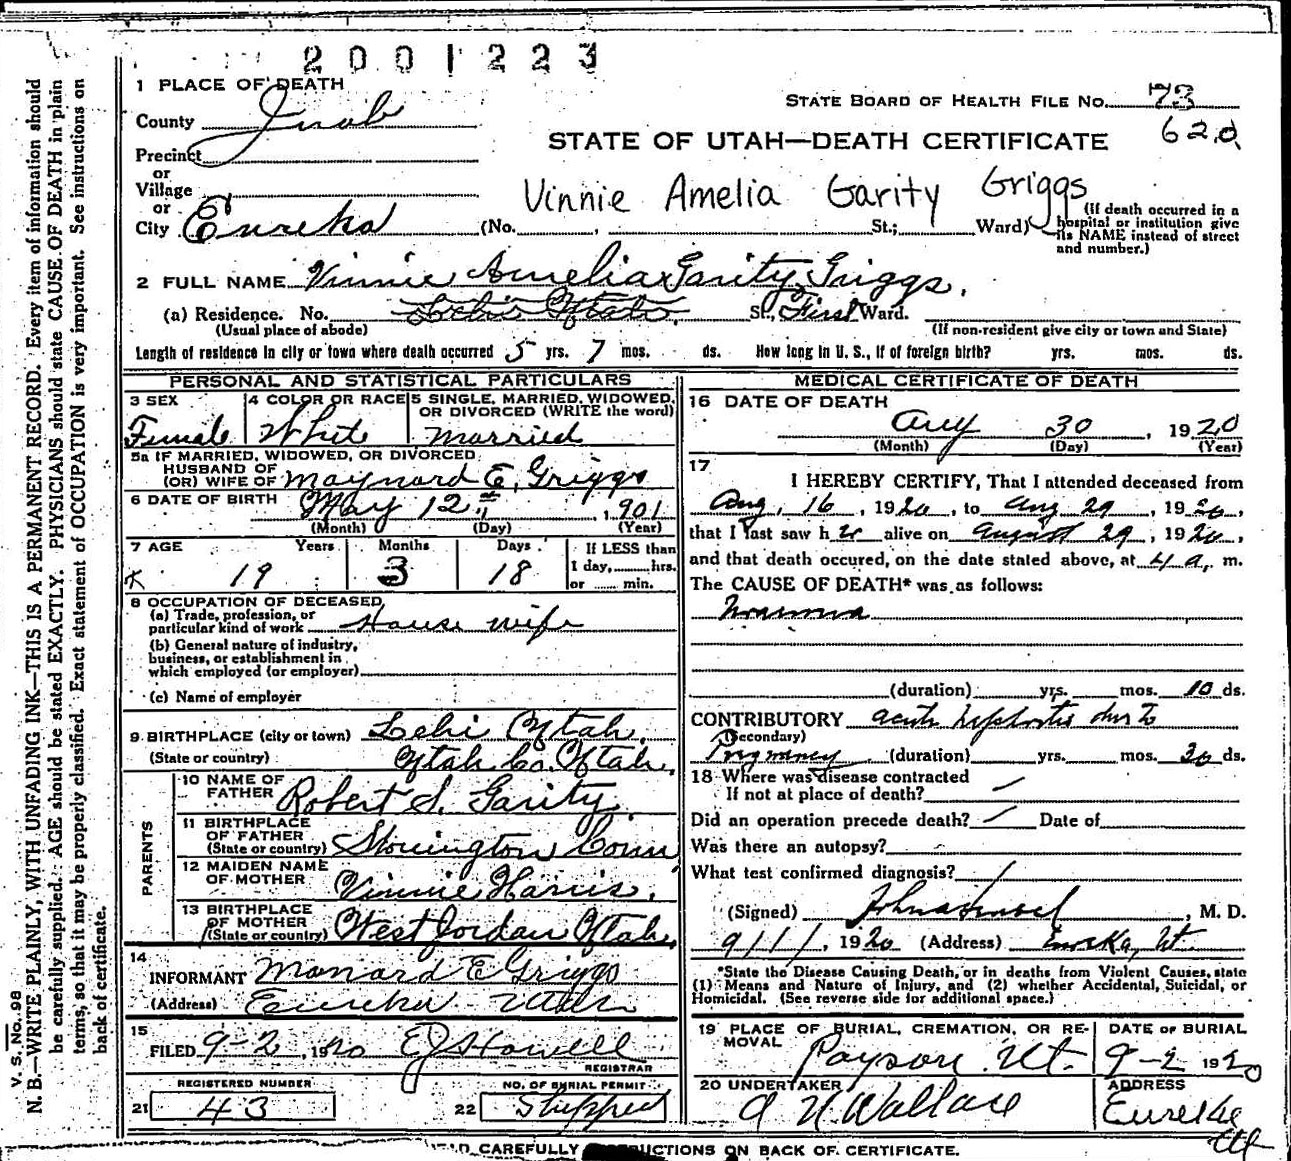 2001223
1 PLACE OF DEATH
STATE BOARD OF HEALTH FILE No. 73
County Juab
620
STATE OF UTAH—DEATH CERTIFICATE
Precinct
or
Village
Vinnie Amelia Garity Griggs
or
City Eureka (No. , St.; Ward) (If death occurred in a hospital or institution give its NAME instead of street and number.)
2 FULL NAME Vinnie Amelia Garity Griggs.
(a) Residence. No. Lehi Utah. St., First Ward.
(Usual place of abode) (If non-resident give city or town and State)
Length of residence in city or town where death occurred 5 yrs. 7 mos. ds. How long in U. S., if of foreign birth? yrs. mos. ds.
PERSONAL AND STATISTICAL PARTICULARS
3 SEX 4 COLOR OR RACE 5 SINGLE, MARRIED, WIDOWED, OR DIVORCED (WRITE the word)
Female White Married
5a IF MARRIED, WIDOWED, OR DIVORCED
HUSBAND OF
(OR) WIFE OF Maynard E. Griggs
6 DATE OF BIRTH May 12th, 1901
(Month) (Day) (Year)
7 AGE Years Months Days If LESS than
1 day, hrs.
19 3 18 or min.
8 OCCUPATION OF DECEASED
(a) Trade, profession, or
particular kind of work House wife
(b) General nature of industry,
business, or establishment in
which employed (or employer)
(c) Name of employer
9 BIRTHPLACE (city or town) Lehi Utah.
(State or country) Utah Co. Utah.
PARENTS
10 NAME OF
FATHER Robert S. Garity.
11 BIRTHPLACE
OF FATHER
(State or country) Stonington Conn
12 MAIDEN NAME
OF MOTHER Vinnie Harris.
13 BIRTHPLACE
OF MOTHER
(State or country) West Jordan Utah.
14
INFORMANT Manard E Griggs
(Address) Eureka Utah
15
FILED 9-2, 1920 E J Howell
REGISTRAR
REGISTERED NUMBER NO. OF BURIAL PERMIT
21 43 22 Shipped
MEDICAL CERTIFICATE OF DEATH
16 DATE OF DEATH
Aug 30, 1920
(Month) (Day) (Year)
17
I HEREBY CERTIFY, That I attended deceased from
Aug. 16, 1920, to Aug 29, 1920,
that I last saw her alive on August 29, 1920,
and that death occured, on the date stated above, at 4 a. m.
The CAUSE OF DEATH* was as follows:
Uraemia
(duration) yrs. mos. 10 ds.
CONTRIBUTORY acute nephritis due to
(Secondary)
Pregnancy (duration) yrs. mos. 30 ds.
18 Where was disease contracted
If not at place of death?
Did an operation precede death? Date of
Was there an autopsy?
What test confirmed diagnosis?
(Signed) , M. D.
9/1/, 1920 (Address) Eureka, Ut.
*State the Disease Causing Death, or in deaths from Violent Causes, state
(1) Means and Nature of Injury, and (2) whether Accidental, Suicidal, or
Homicidal. (See reverse side for additional space.)
19 PLACE OF BURIAL, CREMATION, OR RE-
MOVAL Payson Ut.
DATE OF BURIAL
9-2 1920
20 UNDERTAKER
A N Wallace
ADDRESS
Eureka
Ut
READ CAREFULLY INSTRUCTIONS ON BACK OF CERTIFICATE.
V. S. No. 98
N. B.—WRITE PLAINLY, WITH UNFADING INK—THIS IS A PERMANENT RECORD. Every item of information should
be carefully supplied. AGE should be stated EXACTLY. PHYSICIANS should state CAUSE OF DEATH in plain
terms, so that it may be properly classified. Exact statement of OCCUPATION is very important. See instructions on
back of certificate.